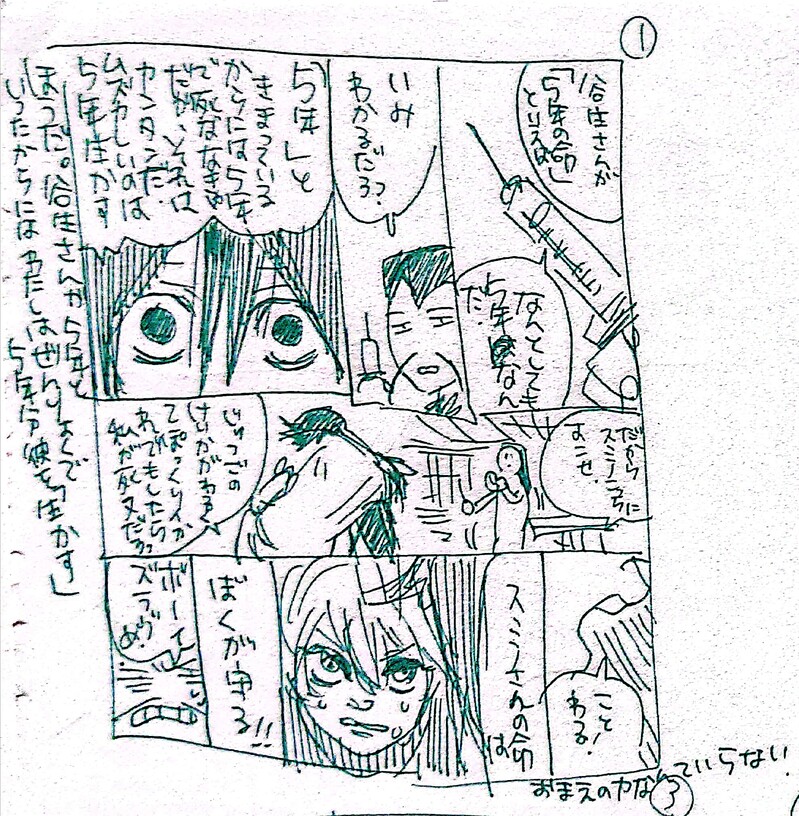 ①
谷生さんが
「5年の命」
といえば
なんとしても
5年なん
だ。
いみ
わかるだろ?
「5年」と
きまっている
からには5年
で死ななきゃ
だが、それは
カンタンだ。
ムズかしいのは
5年生かす
ほうだ。谷生さんが5年と
いったからにはわたしはぜんりょくで
5年分彼を「生かす」
だから
スミノを
よこせ。
じゅつごの
けいかがわるく
てぽっくりイか
れでもしたら
私が死ヌだろ?
ことわる!
スミノさんの命は
ぼくが守る!!
ボーイ
ズラヴ
め!
おまえの力など
いらない
③